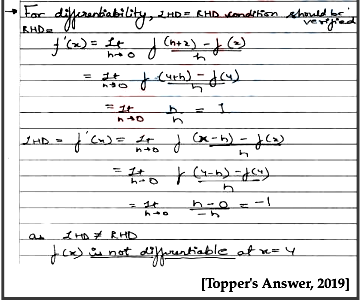 → For differentiability, LHD = RHD condition should be verified
RHD =
f'(x) = Lt h→0 f(h+x) - f(x) / h
= Lt h→0 f(4+h) - f(4) / h
= Lt h→0 h/h = 1
LHD = f'(x) = Lt h→0 f(x-h) - f(x) / h
= Lt h→0 f(4-h) - f(4) / h
= Lt h→0 h-0 / -h = -1
as LHD ≠ RHD
f(x) is not differentiable at x = 4
[Topper's Answer, 2019]